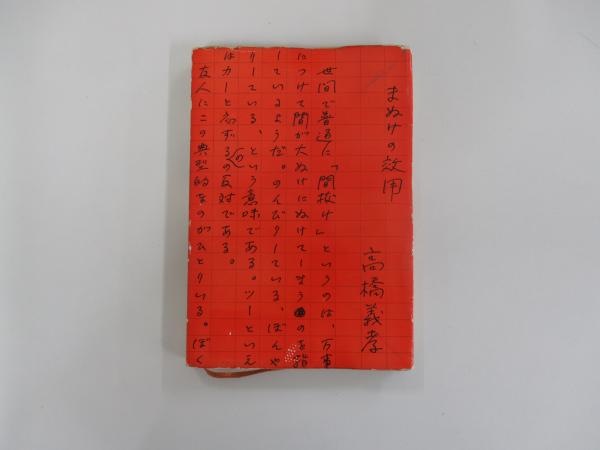 まぬけの効用
高橋義孝
世間で普通に「間抜け」というのは、万事
につけて間が大ぬけにぬけてしまうのを指
しているようだ。のんびりしている、ぼんや
りしている、という意味である。ツーといえ
ばカーと応ずるのの反対である。
友人にこの典型的なのがひとりいる。ぼく